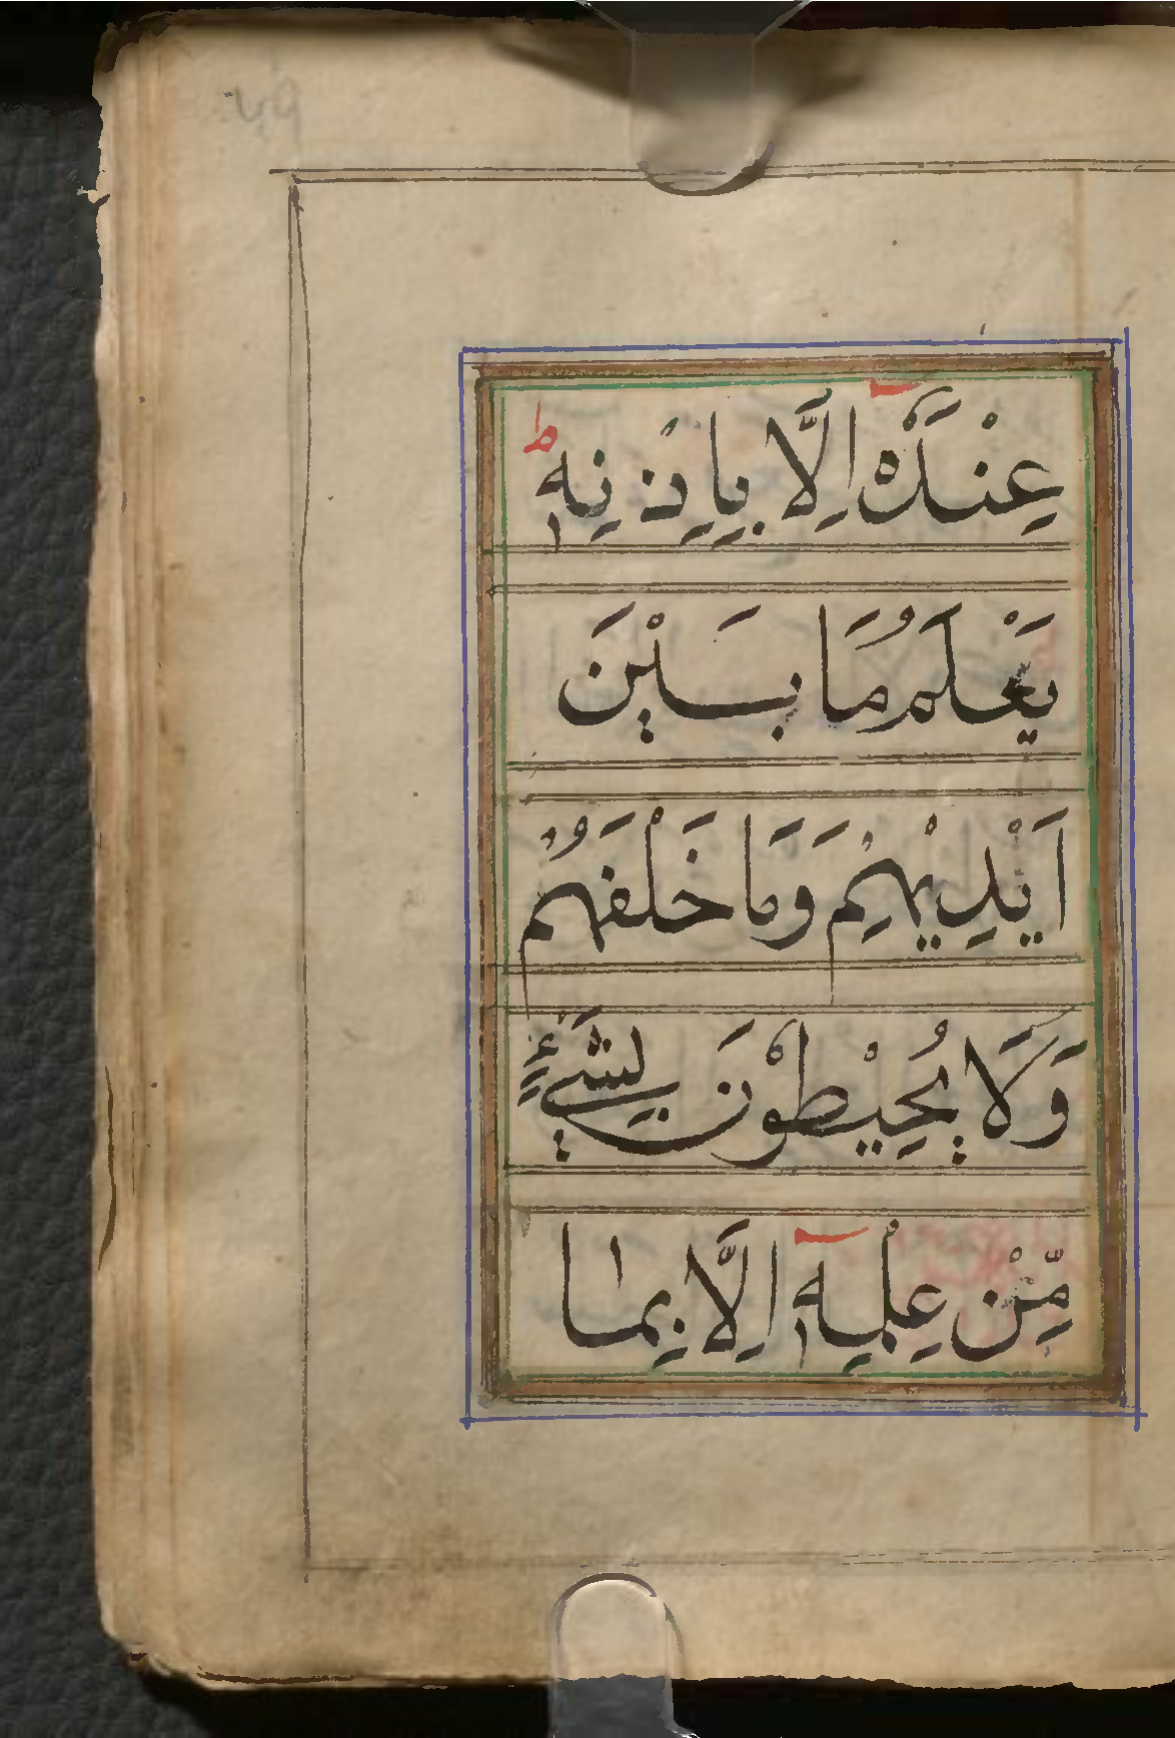 عِنْدَهٗٓ اِلَّا بِاِذْنِهٖ ط
يَعْلَمُ مَا بَيْنَ
اَيْدِيْهِمْ وَمَا خَلْفَهُمْ
وَلَا يُحِيْطُوْنَ بِشَيْءٍ
مِّنْ عِلْمِهٖٓ اِلَّا بِمَا